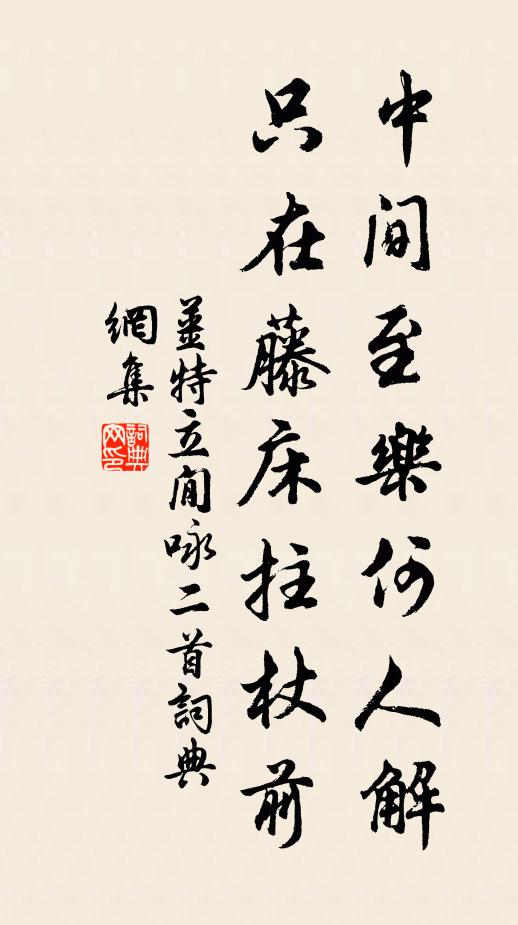 中間至樂何人解
只在藤床拄杖前
姜特立閒咏二首詞典
網集
詞典網印